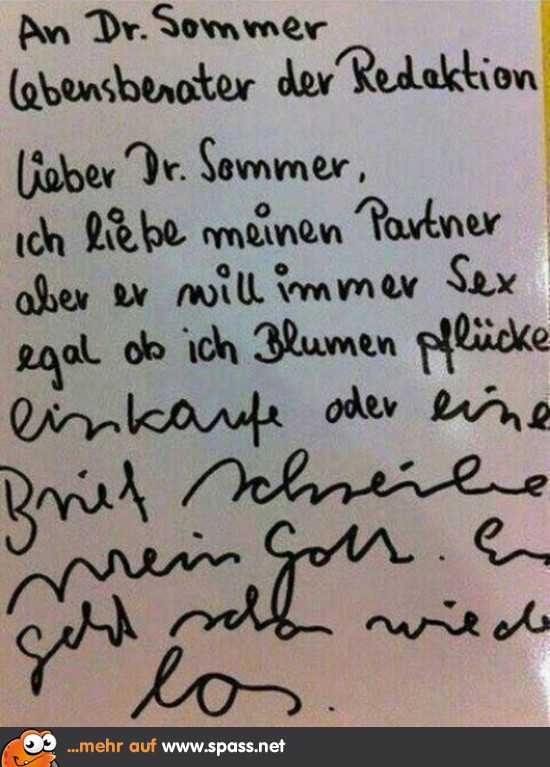 An Dr. Sommer
Lebensberater der Redaktion
Lieber Dr. Sommer,
ich liebe meinen Partner
aber er will immer Sex
egal ob ich Blumen pflücke
einkaufe oder eine
Brief schreibe
mein Gott. Es
geht schon wiede
los.
...mehr auf www.spass.net